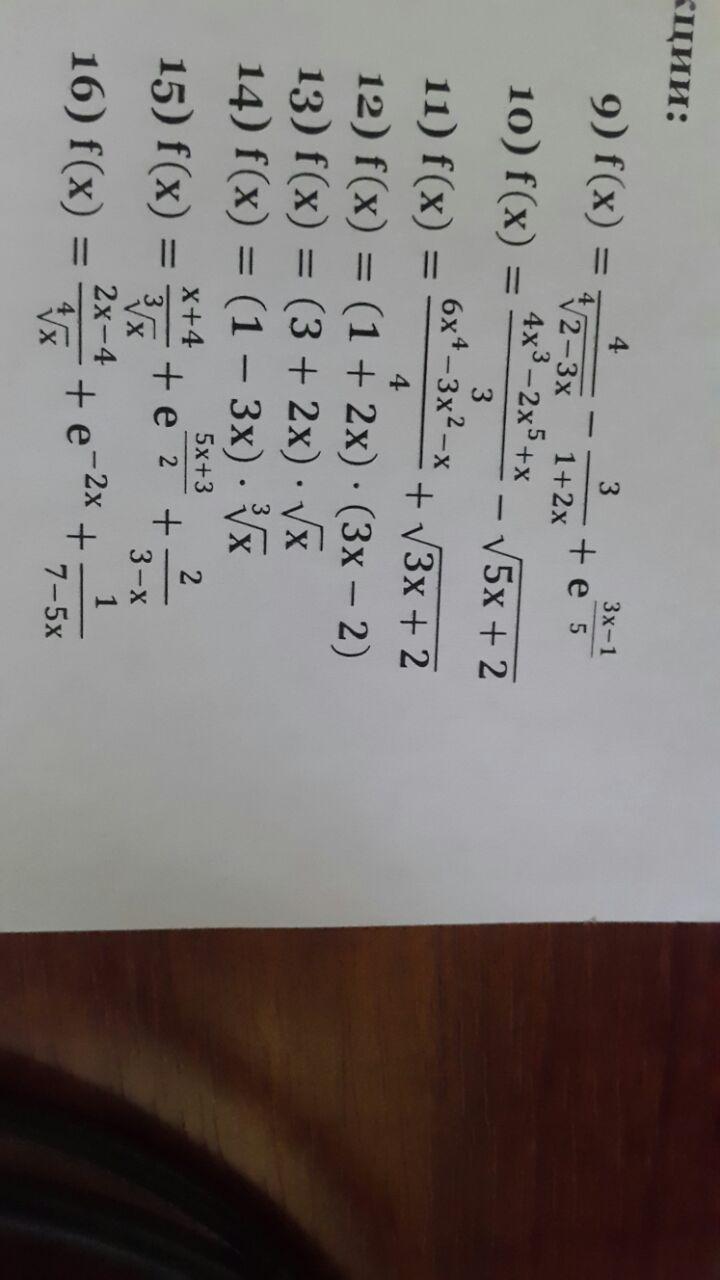 кции:
9) f(x) = 4/∜(2−3x) − 3/(1+2x) + e^((3x−1)/5)
10) f(x) = (4x³−2x⁵+x)/3 − √(5x + 2)
11) f(x) = (6x⁴−3x²−x)/4 + √(3x + 2)
12) f(x) = (1 + 2x) · (3x − 2)
13) f(x) = (3 + 2x) · √x
14) f(x) = (1 − 3x) · ∛x
15) f(x) = (x+4)/∛x + e^((5x+3)/2) + 2/(3−x)
16) f(x) = (2x−4)/∜x + e^(−2x) + 1/(7−5x)